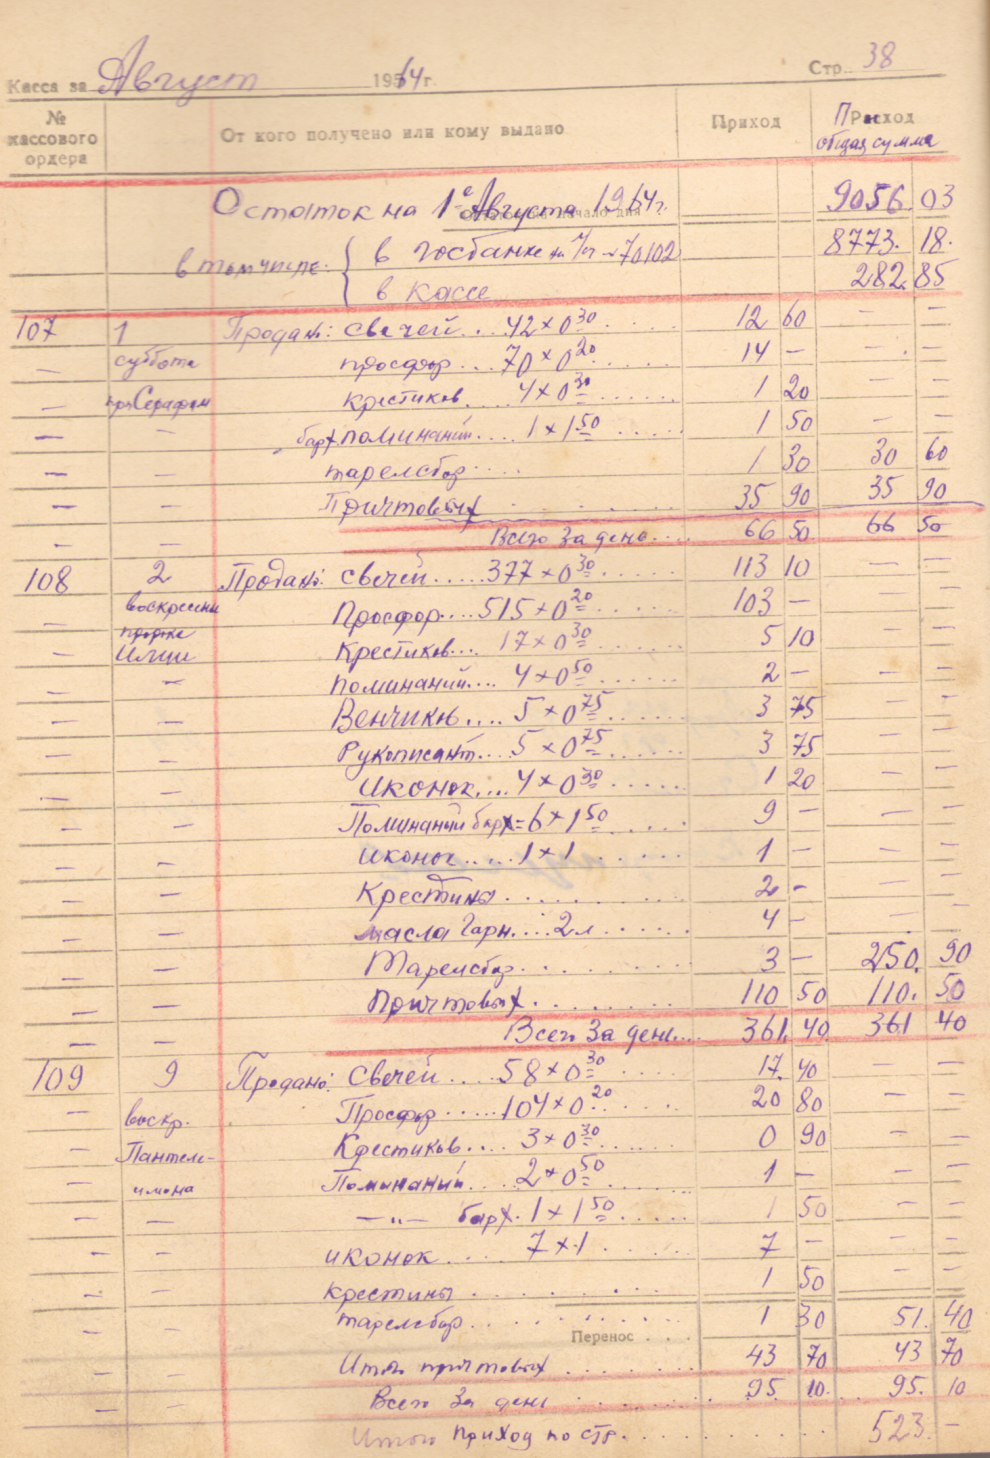 Касса за Август 1964 г. Стр. 38
№ кассового ордера От кого получено или кому выдано Приход Приход общая сумма
Остаток на 1е Августа 1964 г. 9056 03
в том числе: { в Госбанке на т/сч № 70102 8773. 18.
в кассе 282. 85
107 1 Продано: свечей.... 42 × 0 30 12 60 — —
— суббота просфор... 70 × 0 20 14 — — —
— пр. Серафим крестиков.... 4 × 0 30 1 20 — —
— — барх. поминаний.... 1 × 1 50 1 50 — —
— — тарелсбор.... 1 30 30 60
— — Причтовых 35 90 35 90
— — Всего за день.... 66 50 66 50
108 2 Продано: свечей..... 377 × 0 30 113 10 — —
— воскресени Просфор.... 515 × 0 20 103 — — —
— Илии Крестиков... 17 × 0 30 5 10 — —
— — Поминаний.... 4 × 0 50 2 — — —
— — Венчиков.... 5 × 0 75 3 75 — —
— — Рукописант... 5 × 0 75 3 75 — —
— — Иконок.... 4 × 0 30 1 20 — —
— — Поминаний барх = 6 × 1 50 9 — — —
— — Иконок..... 1 × 1 1 — — —
— — Крестины 2 — — —
— — масла Гарн.... 2 л 4 — — —
— — Тарелсбор 3 — 250. 90
— — Причтовых 110 50 110. 50
— — Всего за день.... 361. 40 361 40
109 9 Продано: Свечей.... 58 × 0 30 17. 40 — —
— воскр. Просфор..... 104 × 0 20 20 80 — —
— Пантеле- Крестиков.... 3 × 0 30 0 90 — —
— имона Поминаний.... 2 × 0 50 1 — — —
— — —"— барх. 1 × 1 50 1 50 — —
— — иконок.... 7 × 1 7 — — —
— — крестины 1 50 — —
— — тарелсбор 1 30 51. 40
Перенос
— — Итого причтовых 43 70 43 70
— — Всего за день 95 10. 95. 10
Итого приход по стр. 523. —